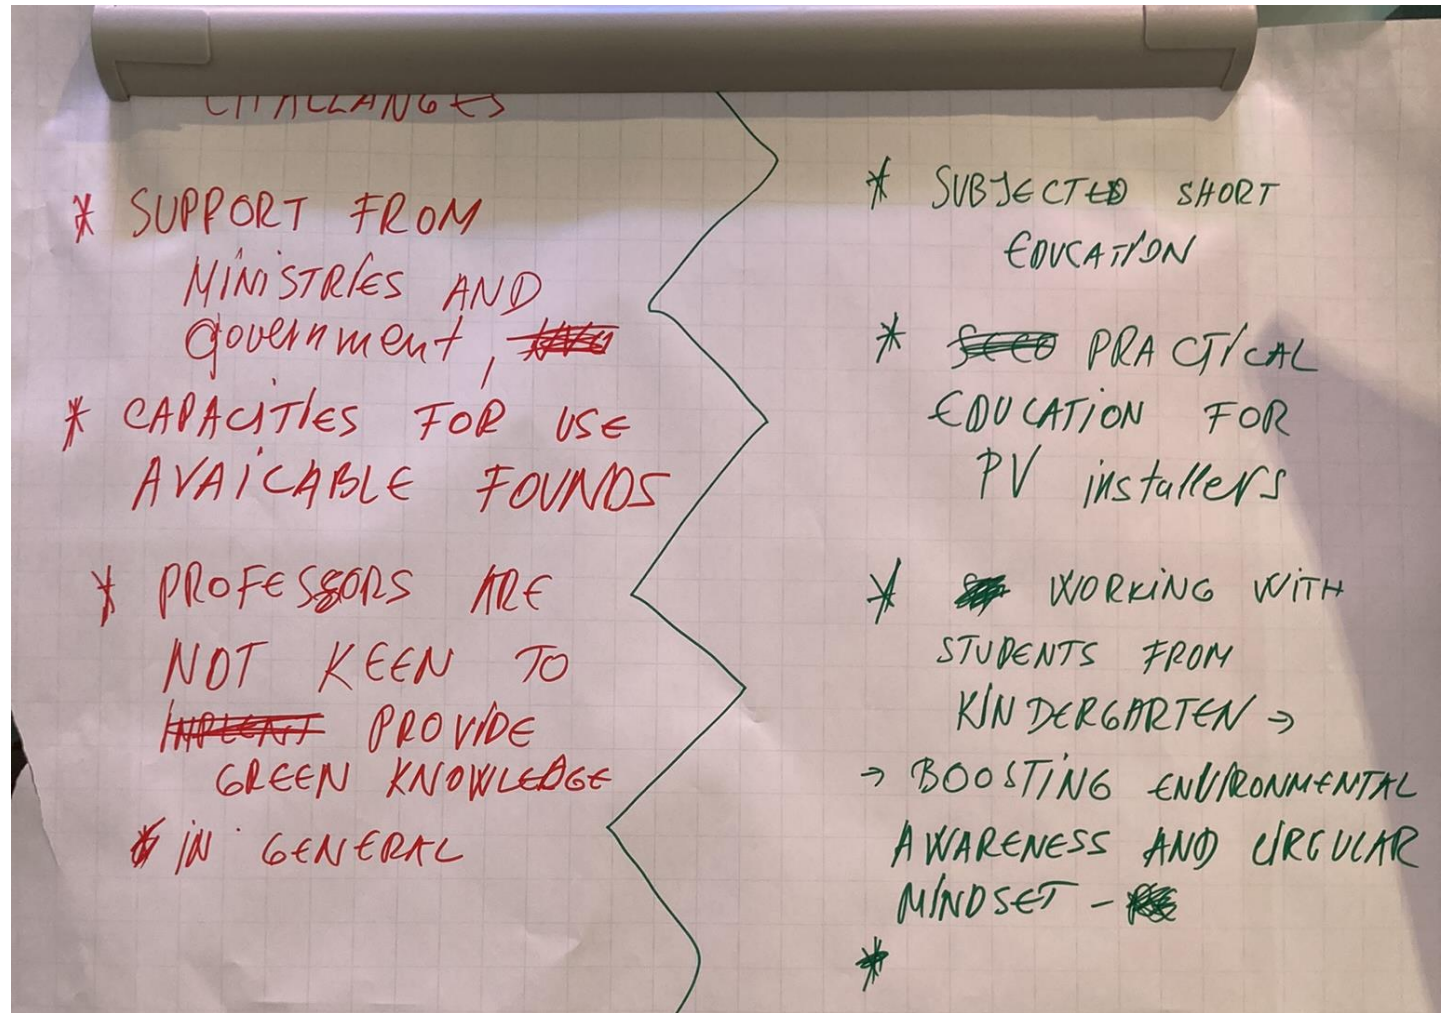 CHALLANGES
* SUPPORT FROM
MINISTRIES AND
government,
* CAPACITIES FOR USE
AVAICABLE FOUNDS
* PROFESSORS ARE
NOT KEEN TO
PROVIDE
GREEN KNOWLEDGE
* IN GENERAL
* SUBJECTED SHORT
EDUCATION
* PRACTICAL
EDUCATION FOR
PV installers
* WORKING WITH
STUDENTS FROM
KINDERGARTEN →
→ BOOSTING ENVIRONMENTAL
AWARENESS AND CIRCULAR
MINDSET -
*